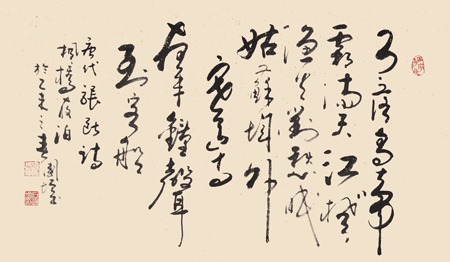 月落烏啼
霜满天江楓
漁火對愁眠
姑蘇城外
寒山寺
夜半鐘聲
到客船
唐代張繼詩
楓橋夜泊
於乙未之春